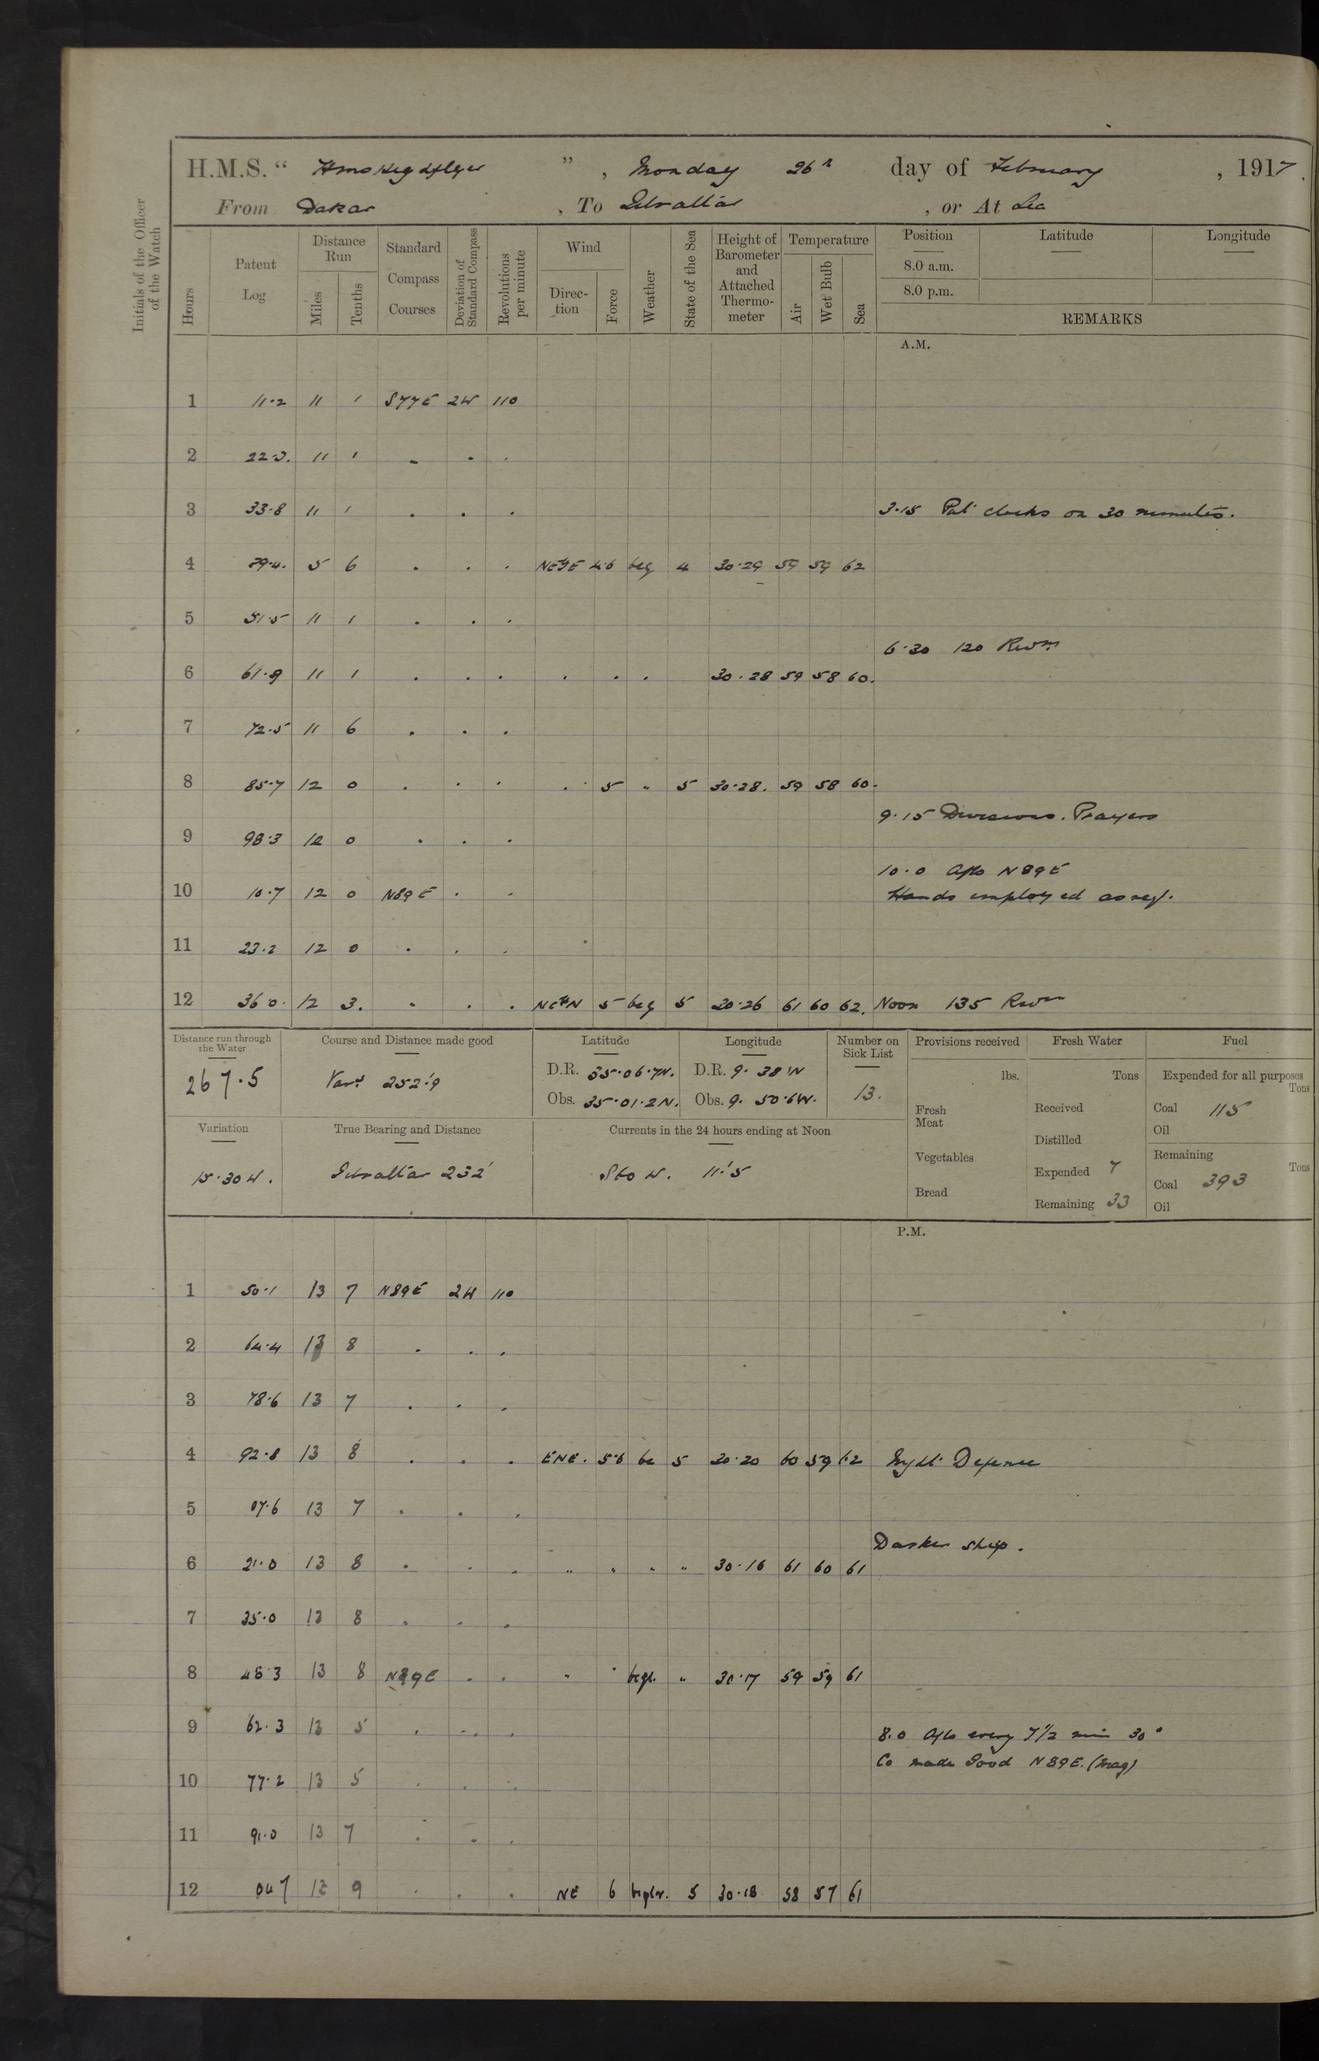 H.M.S. " Hms Highflyer ", Monday 26th day of February, 1917.
From Dakar, To Gibraltar, or At Sea
Initials of the Officer of the Watch
Hours Patent Log Distance Run Miles Tenths Standard Compass Courses Deviation of Standard Compass Revolutions per minute Wind Direction Force Weather State of the Sea Height of Barometer and Attached Thermometer Temperature Air Wet Bulb Sea Position Latitude Longitude
8.0 a.m.
8.0 p.m.
REMARKS
A.M.
1 11.2 11 1 S77E 2W 110
2 22.3. 11 1 . . .
3 33.8 11 1 . . . 3.15 Put clocks on 30 minutes.
4 39.4. 5 6 . . . NE'E 4.6 bcq 4 30.29 59 59 62
5 51.5 11 1 . . .
6.30 120 Revns
6 61.9 11 1 . . . . . . 30.28 59 58 60.
7 72.5 11 6 . . .
8 85.7 12 0 . . . . 5 " 5 30.28. 59 58 60.
9.15 Divisions. Prayers
9 98.3 12 0 . . .
10.0 A/Co N89E
10 10.7 12 0 N89E . . Hands employed as req.
11 23.2 12 0 . . .
12 36.0. 12 3. . . . NE'N 5 bcq 5 30.26 61 60 62. Noon 135 Revns
Distance run through the Water 267.5
Course and Distance made good Vars 252'.9
Latitude D.R. 35.06.7N. Obs. 35.01.2N.
Longitude D.R. 9.38'W Obs. 9. 50.6W.
Number on Sick List 13.
Provisions received lbs. Fresh Meat Vegetables Bread
Fresh Water Tons Received Distilled Expended 7 Remaining 33
Fuel Expended for all purposes Tons Coal 115 Oil Remaining Tons Coal 393 Oil
Variation 15.30W.
True Bearing and Distance Gibraltar 232'
Currents in the 24 hours ending at Noon S60W. 11'.5
P.M.
1 50.1 13 7 N89E 2W 110
2 64.4 13 8 . . .
3 78.6 13 7 . . .
4 92.8 13 8 . . . ENE. 5.6 bc 5 30.20 60 59 62 Night Defence
5 07.6 13 7 . . .
Darken ship.
6 21.0 13 8 . . . " . " " 30.16 61 60 61
7 35.0 13 8 . . .
8 48.3 13 8 N89E . . " " bcqp. " 30.17 59 59 61
9 62.3 13 5 . . . 8.0 A/Co every 7 1/2 min 30°
Co made Good N89E. (mag)
10 77.2 13 5 . . .
11 91.0 13 7 . . .
12 047 13 9 . . . NE 6 5 30.18 58 57 61